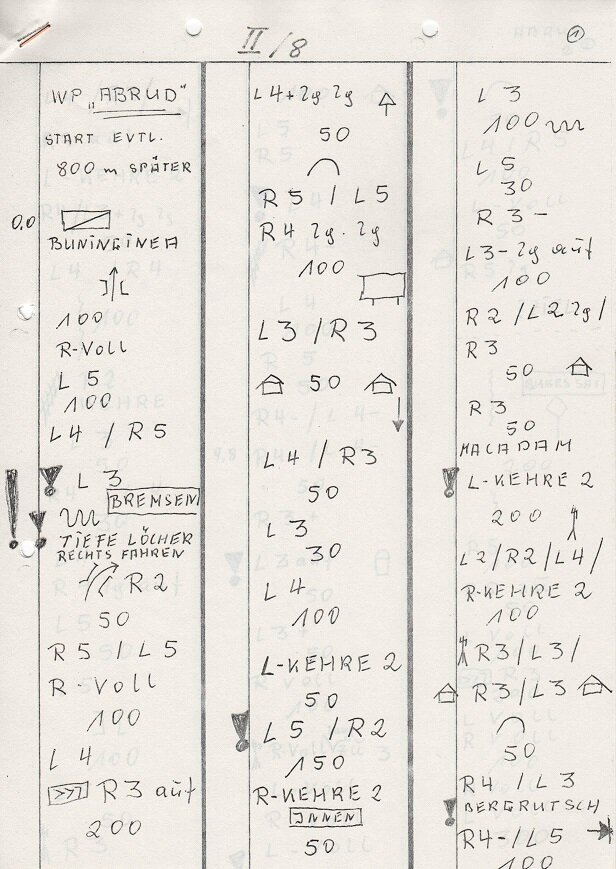 II/8
1
WP „ABRUD"
START EVTL.
800 m SPÄTER
0.0
BUNINGINEA
100
R-VOLL
L 5
100
L4 / R5
! ! L 3
BREMSEN
!
TIEFE LÖCHER
RECHTS FAHREN
R2
50
R5 / L5
R-VOLL
100
L 4
>>> R3 auf
200
L4+2g 2g
50
R5 / L5
R4 2g. 2g
100
L3 / R3
50
L4 / R3
50
L 3
30
L 4
100
L-KEHRE 2
50
! L5 / R2
150
R-KEHRE 2
INNEN
50
L 3
100
L 5
30
R 3 -
L3-2g auf
100
R2 / L2 2g /
R 3
50
R 3
50
MACADAM
! L-KEHRE 2
200
L2/R2/L4/
R-KEHRE 2
100
R3/L3/
R3/L3
50
R4 / L3
! BERGRUTSCH
R4-/L5
100